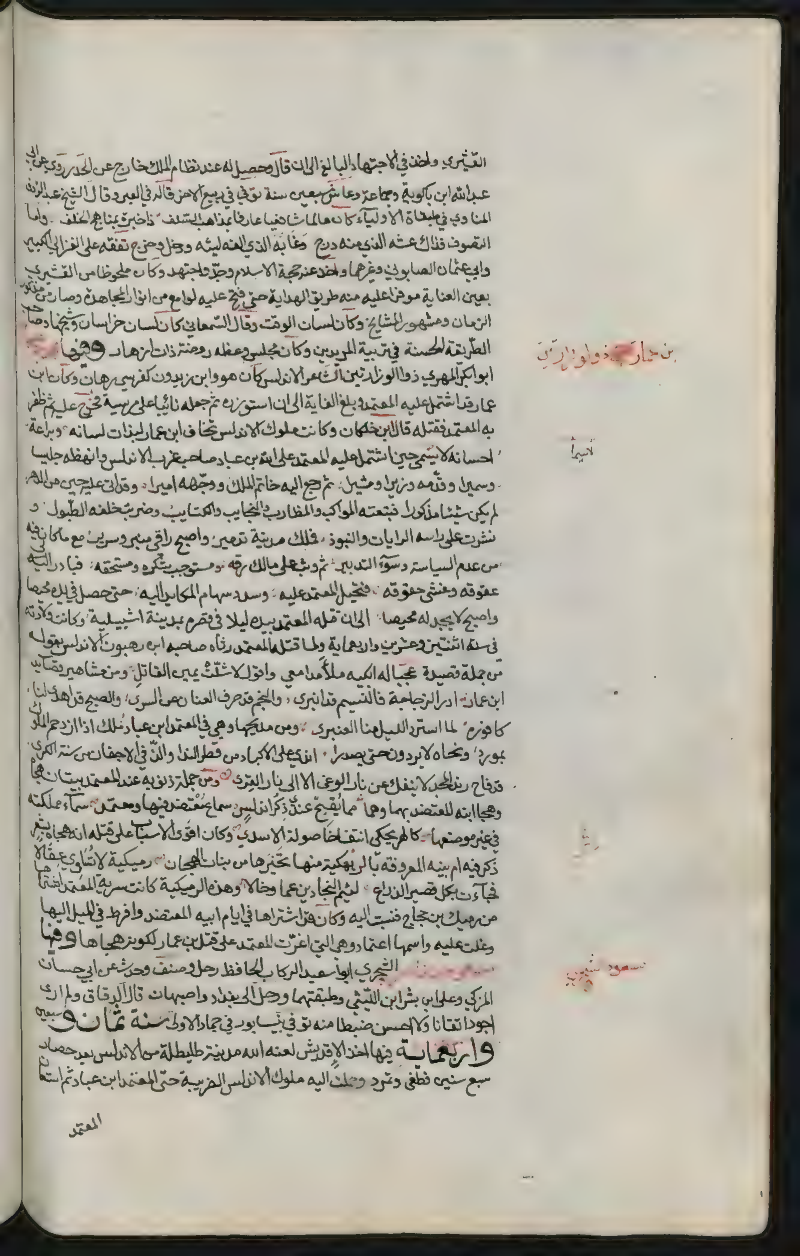 القشيري واخذ في الاجتهاد البالغ الى ان قال وحصل له عند نظام الملك خارج عن الحد روى عن ابي
عبد الله ابن باكوية وجماعة وعاش سبعين سنة توفي في ربيع الاخر قاله في العبر وقال الشيخ عبد الرؤف
المناوي في طبقاة الاولياء كان عالما شافعيا عارفا بمذاهب السلف ذا خبرة بمناهج الخلف واما
التصوف فذاك عشه الذي منه درج وغابه الذي الفه ليثه ودخل وخرج تفقه على الغزالي الكبير
وابي عثمان الصابوني وغيرهما واخذ عنه حجة الاسلام وجد واجتهد وكان ملحوظا من القشيري
بعين العناية موفرا عليه منه طريق الهداية حتى فتح عليه لوامع من انوار المجاهدة وصار من مذكوري
الزمان ومشهور المشايخ وكان لسان الوقت وقال السمعاني كان لسان خراسان وشيخها وصاحب
الطريقة الحسنة في تربية المريدين وكان مجلس وعظه روضة ذات ازهار وفيها
بن عمار ذو الوزارتين
ابو بكر المهري ذو الوزارتين الشاعر الاندلسي كان هو وابن زيدون كفرسي رهان وكان ابن
عمار قد اشتمل عليه المعتمد وبلغ الغاية الى ان استوزره ثم جعله نائبا على مرسية فخرج عليه ثم ظفر
به المعتمد فقتله قال ابن خلكان وكانت ملوك الاندلس تخاف ابن عمار لبذات لسانه وبراعة
احسانه لا سيما حين اشتمل عليه المعتمد على الله بن عباد صاحب غرب الاندلس وانهظه جليسا
وسميرا وقدمه وزيرا ومشيرا ثم وجع اليه خاتم الملك ووجهه اميرا وقد اتى عليه حين من الدهر
لم يكن شيئا مذكورا فتبعته المواكب والمظارب والنجايب والكتايب وضربت خلفه الطبول و
نشرت على راسه الرايات والبنود فملك مدينة تدمير واصبح راقي منبر وسرير مع ما كان فيه
من عدم السياسة وسوء التدبير ثم وثب على مالك رقه ومستوجب شكره ومستحقه فبادر الى
عقوقه وغشى حقوقه فتحيل المعتمد عليه وسدد سهام المكايد اليه حتى حصل في يده محيصا
واصبح لا يجد له محيصا الى ان قتله المعتمد بيده ليلا في قصره بمدينة اشبيلية وكانت ولادته
في سنة اثنتين وعشرين واربعماية ولما قتله المعتمد رثاه صاحبه ابن وهبون الاندلسي بقوله
من جملة قصيدة عجبا له ابكيه ملأ مدامعي واقول لا شلت يمين القاتل ومن مشاهير قصايد
ابن عمار ادر الزجاجة فالنسيم قد انبرى والنجم قد صرف العنان عن السرى والصبح قد اهدى لنا
كافوره لما استرد الليل منا العنبرى ومن مديحها وهي في المعتمد ابن عباد ملك اذا ازدحم الملوك
بمورد ونحاه لا يردون حتى يصدرا اندى على الاكباد من قطر الندا والذ في الاجفان من سنة الكرى
قداح زند المجد لا ينفك عن نار الوغى الا الى نار القرى ومن جملة ذنوبه عند المعتمد بيتان هجاه
وهجا ابنه المعتضد بهما وهما مما يقبح عندي ذكر اندلس سماع معتضد فيها ومعتمد اسماء مملكته
في غير موضعها كالهر يحكي انتفاخا صولة الاسد وكان اقوى الاسباب على قتله انه هجاه بشعر
ذكر فيه ام بنيه المعروفة بالرميكية منها تخيرها من بنات الهجان رميكية لا تساوي عقالا
فجاءت بكل قصير الذراع لئيم النجادين عما وخالا وهذه الرميكية كانت سرية المعتمد اشتراها
من رميك بن حجاج فنسبت اليه وكان قد اشتراها في ايام ابيه المعتضد وافرط في الميل اليها
وغلبت عليه واسمها اعتماد وهي التي اغرت المعتمد على قتل بن عمار لكونه هجاها وفيها
مسعود بن ناصر الشجري ابو سعيد الركاب الحافظ رحل وصنف وحدث عن ابي حسان
المزكي وعلي ابن بشر ابن الليثي وطبقتهما ورحل الى بغداد واصبهان قال الدقاق ولم ار
اجود اتقانا ولا احسن ضبطا منه توفي في نيسابور في جماد الاولى سنة ثمان وسبعين
واربعماية فيها اخذ الاذفونش لعنه الله مدينة طليطلة من الاندلس بعد حصار
سبع سنين فطغى وتمرد وحملت اليه ملوك الاندلس الضريبة حتى المعتمد ابن عباد ثم استعان
المعتمد